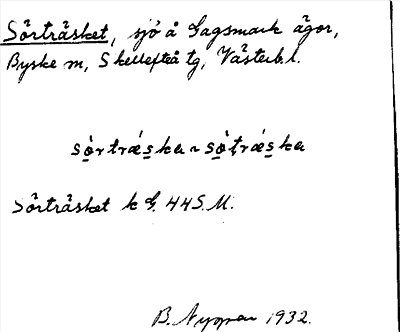 Sörträsket, sjö å Gagsmark ägor,
Byske sn, Skellefteå tg, Västerb.l.
sö̀rtrǽska ~ sö̀ţrǽska
Sörträsket k G. 44 S.M.
B. Nyman 1932.